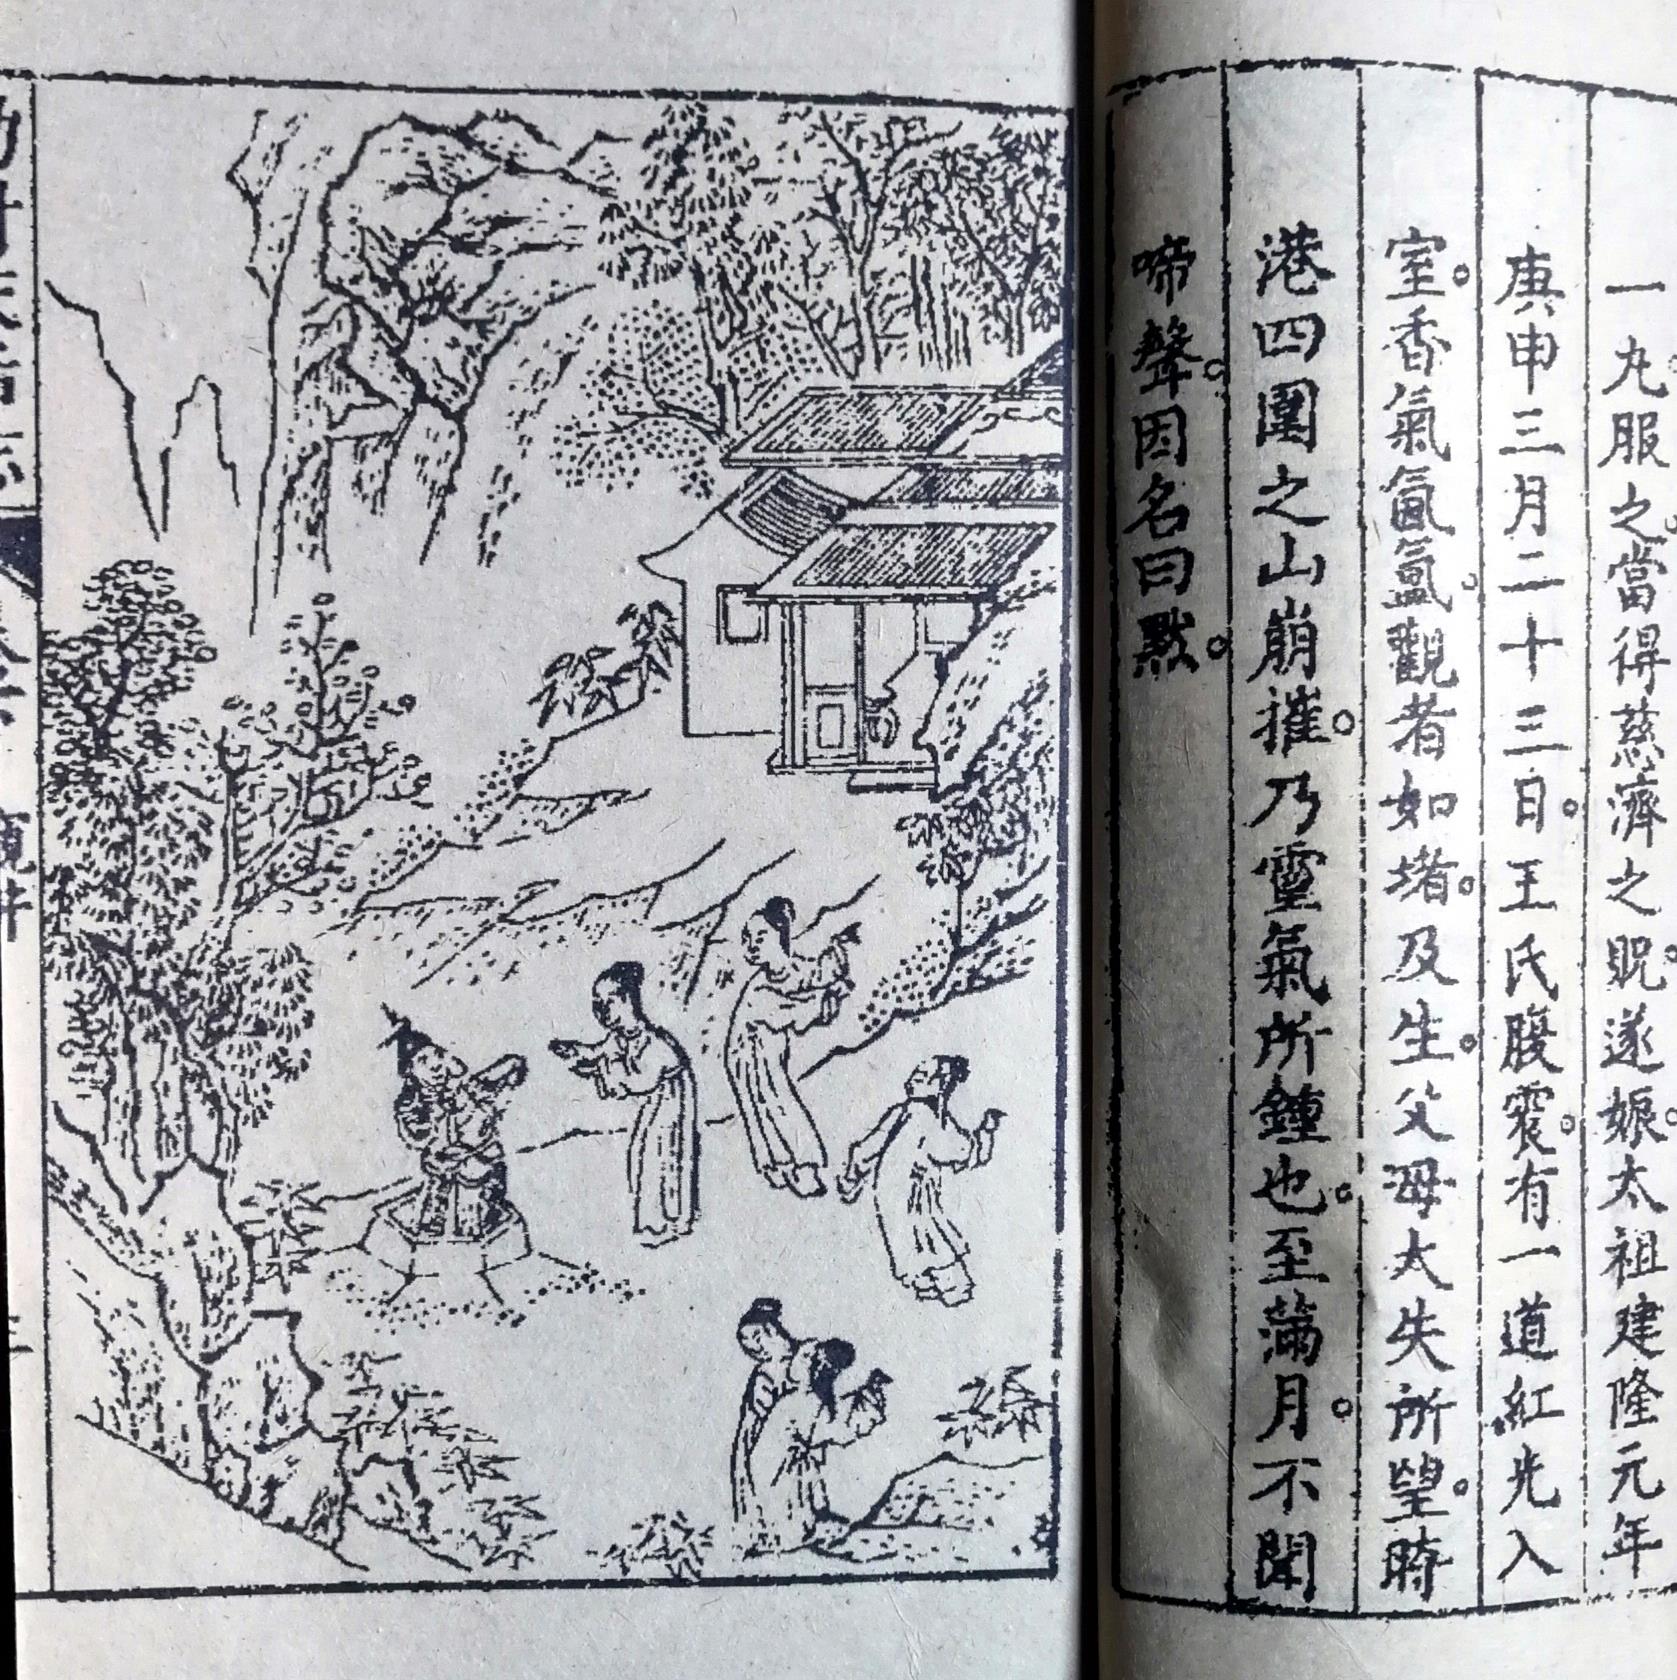 一丸服之當得慈濟之貺遂娠太祖建隆元年
庚申三月二十三日王氏腹震有一道紅光入
室香氣氤氳觀者如堵及生父母大失所望時
港四圍之山崩摧乃靈氣所鍾也至滿月不聞
啼聲因名曰默
窺井